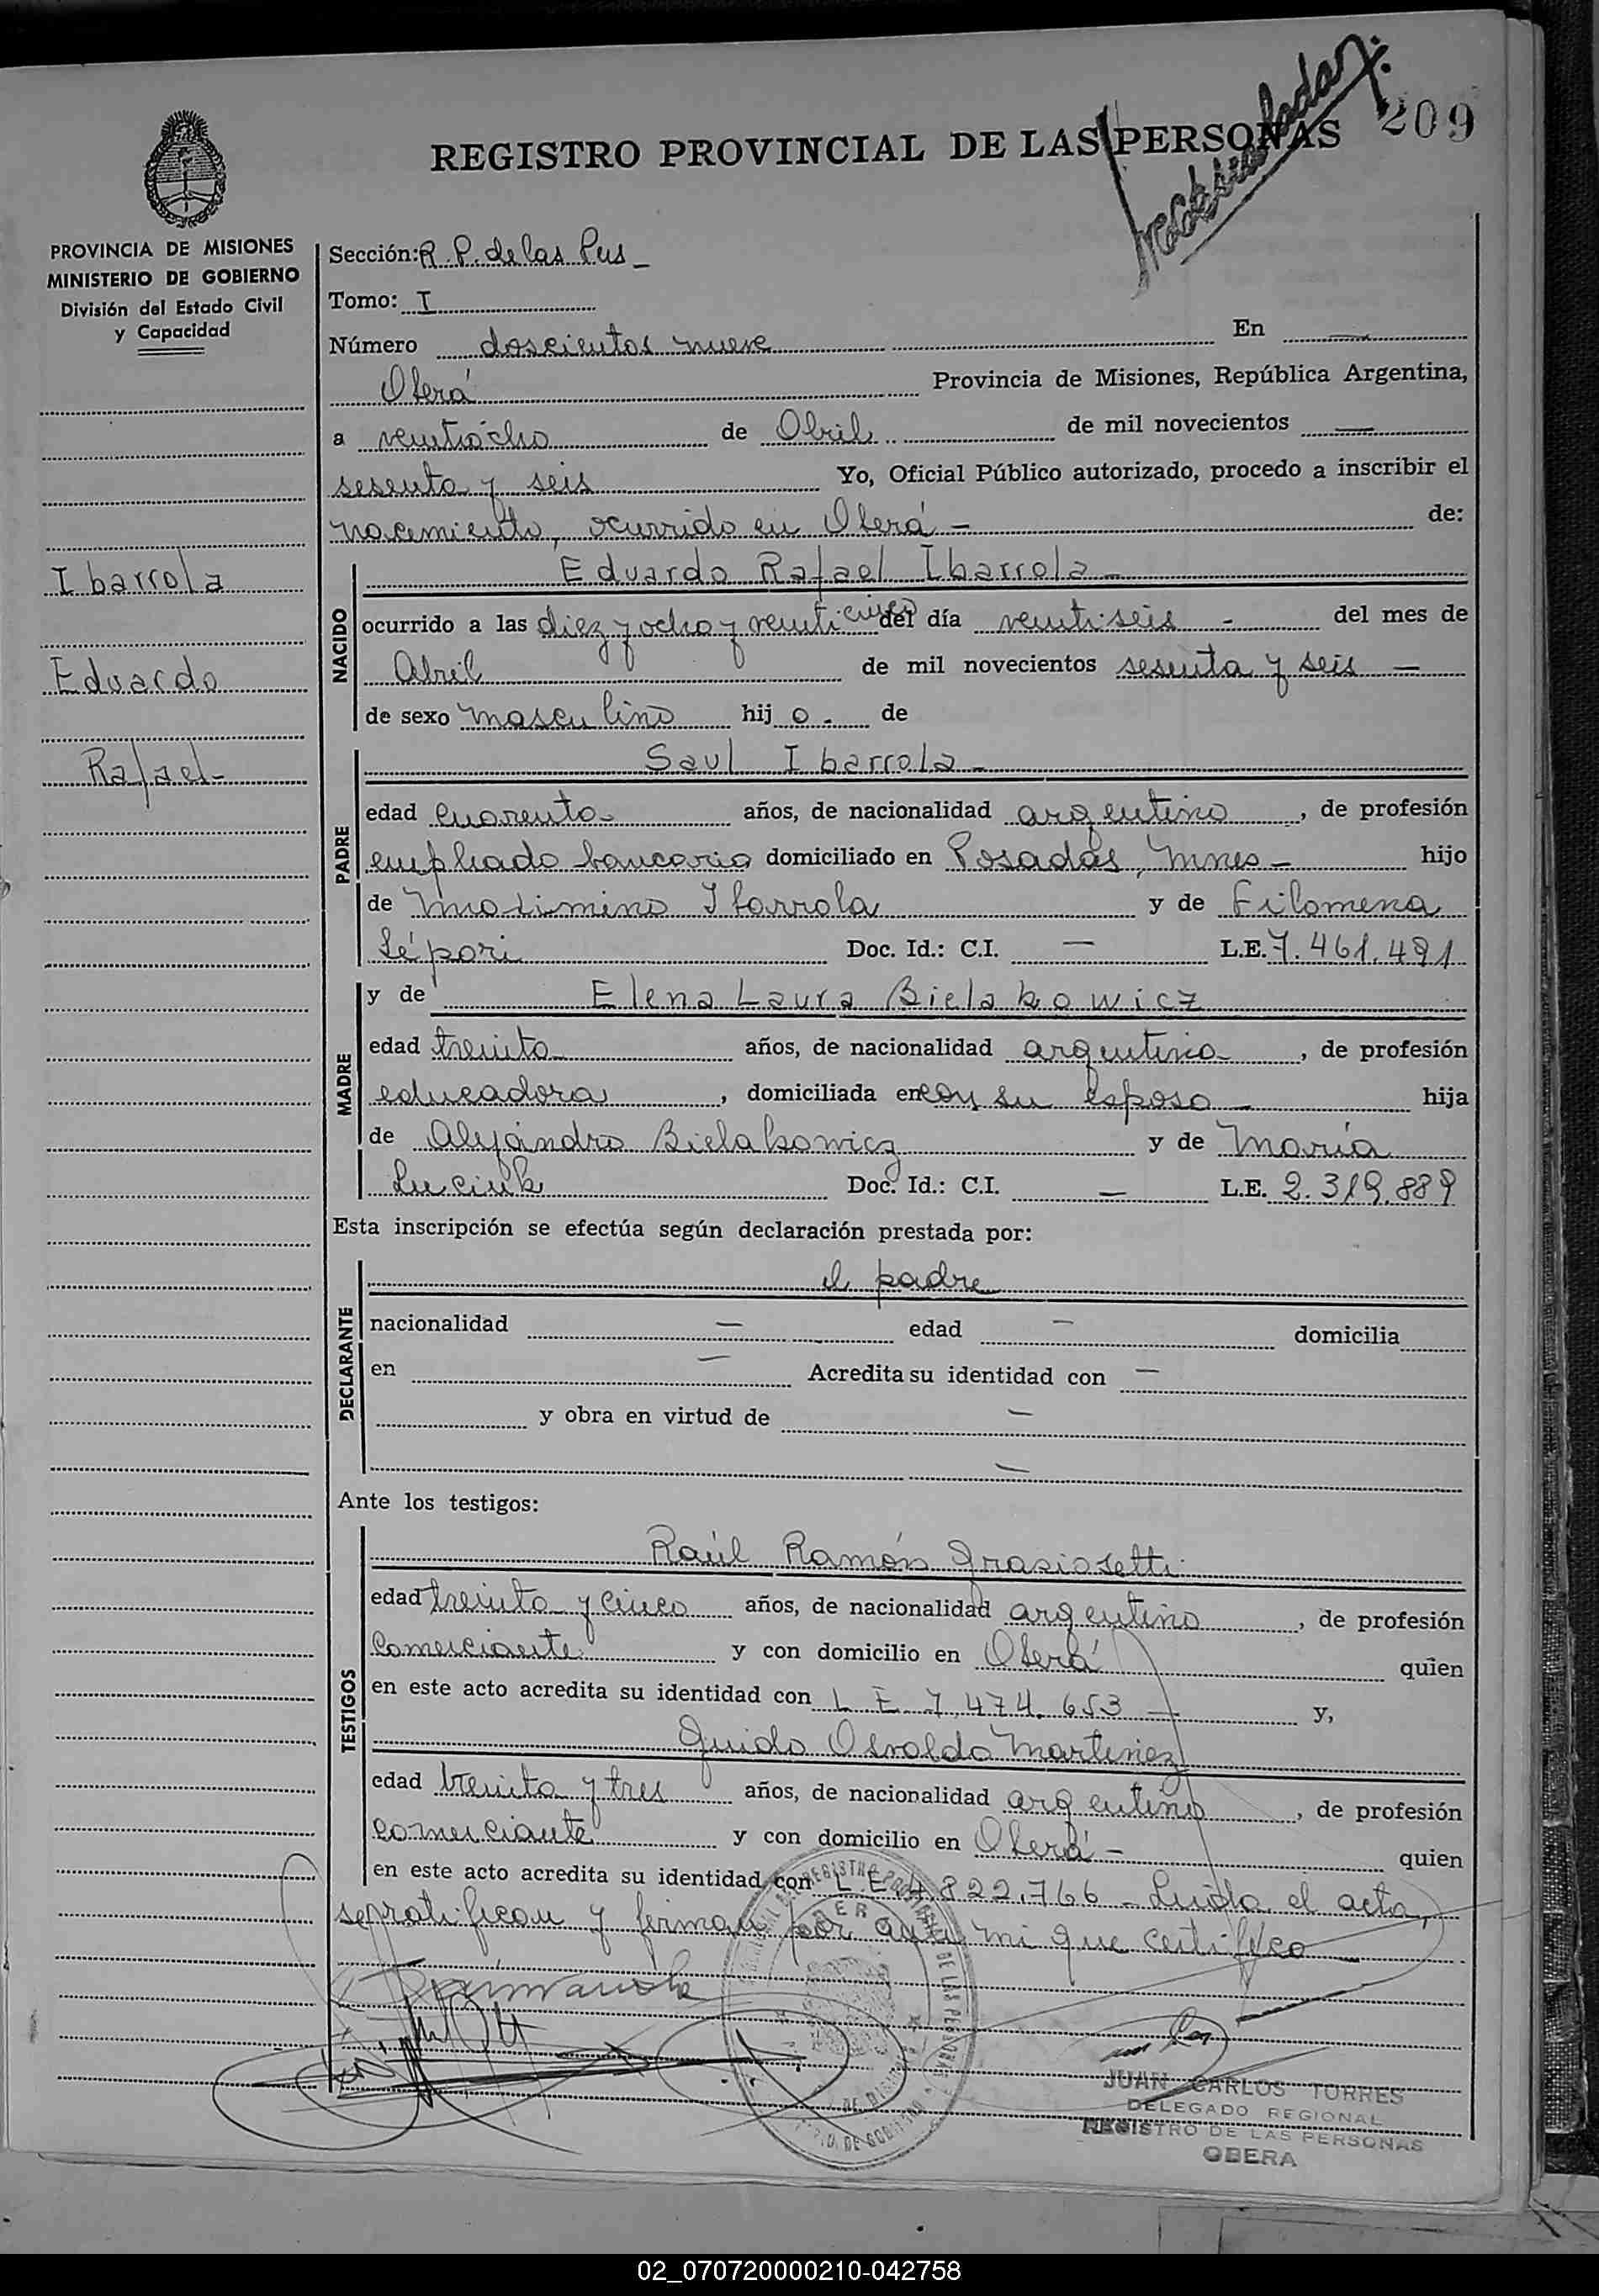 209
REGISTRO PROVINCIAL DE LAS PERSONAS
PROVINCIA DE MISIONES
MINISTERIO DE GOBIERNO
División del Estado Civil
y Capacidad
Ibarrola
Eduardo
Rafael-
Sección: R. P. de las Pers -
Tomo: I
Número doscientos nueve En —
Oberá Provincia de Misiones, República Argentina,
a veintiocho de Abril de mil novecientos —
sesenta y seis Yo, Oficial Público autorizado, procedo a inscribir el
nacimiento, ocurrido en Oberá - de:
NACIDO
Eduardo Rafael Ibarrola -
ocurrido a las diez y ocho y veinticinco del día veintiseis - del mes de
Abril de mil novecientos sesenta y seis —
de sexo masculino hijo. de
PADRE
Saul Ibarrola -
edad cuarenta años, de nacionalidad argentino, de profesión
empleado bancario domiciliado en Posadas, Mnes - hijo
de Maximino Ibarrola y de Filomena
Sépori Doc. Id.: C.I. — L.E. 7.461.491
MADRE
y de Elena Laura Bielakowicz
edad treinta años, de nacionalidad argentina, de profesión
educadora, domiciliada en con su esposo - hija
de Alejandro Bielakowicz y de María
Luciuk Doc. Id.: C.I. — L.E. 2.319.889
Esta inscripción se efectúa según declaración prestada por:
DECLARANTE
el padre
nacionalidad — edad — domicilia
en — Acredita su identidad con —
y obra en virtud de —
—
Ante los testigos:
TESTIGOS
Raúl Ramón Grasiosetti
edad treinta y cinco años, de nacionalidad argentino, de profesión
comerciante y con domicilio en Oberá quien
en este acto acredita su identidad con L E 7.474.653 — y,
Guido Osvaldo Martinez
edad treinta y tres años, de nacionalidad argentino, de profesión
comerciante y con domicilio en Oberá - quien
en este acto acredita su identidad con L E 4.822.766 - Leída el acta,
se ratifican y firman por ante mi que certifico
JUAN CARLOS TORRES
DELEGADO REGIONAL
REGISTRO DE LAS PERSONAS
OBERA
02_070720000210-042758